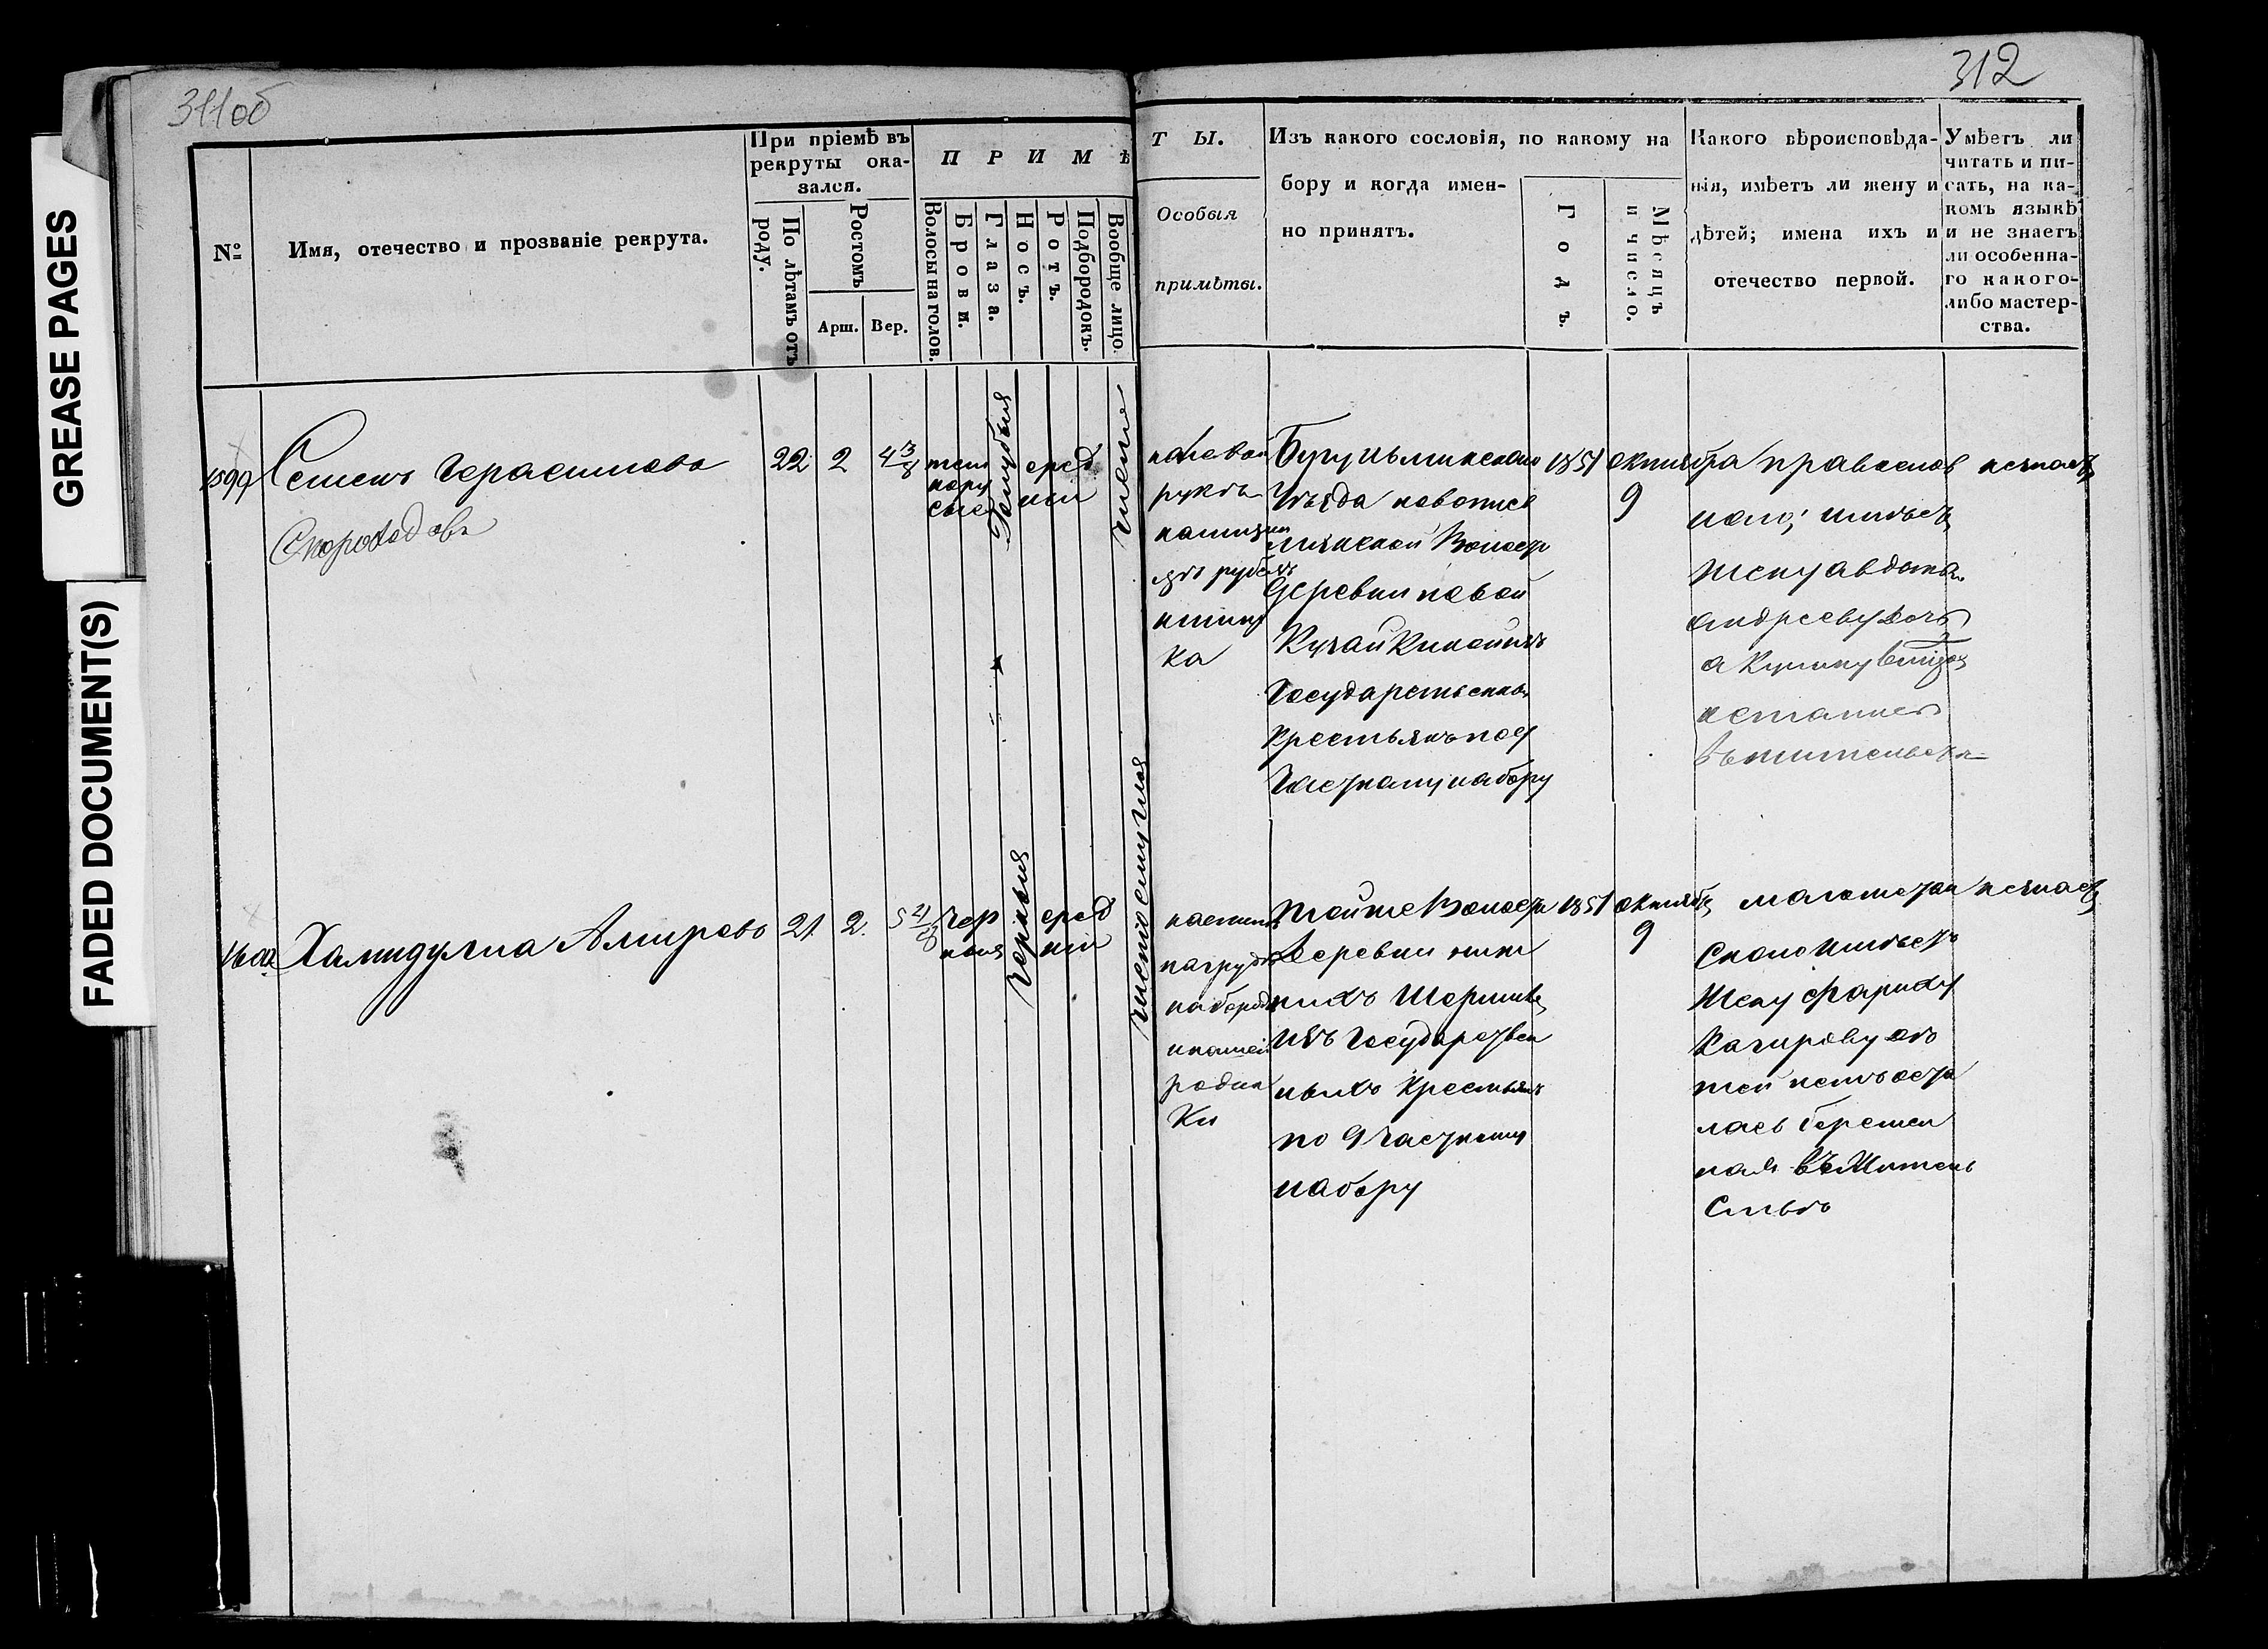 GREASE PAGES
FADED DOCUMENT(S)
311об
312
№
Имя, отечество и прозваніе рекрута.
При пріемѣ въ
рекруты ока-
зался.
По лѣтамъ отъ
роду.
Ростомъ
Арш.
Вер.
П Р И М Ѣ
Волосы на голов.
Брови.
Глаза.
Носъ.
Ротъ.
Подбородокъ.
Вообще лицо.
Т Ы.
Особыя
примѣты.
Изъ какого сословія, по какому на
бору и когда имен-
но принятъ.
Годъ.
Мѣсяцъ
и число.
Какого вѣроисповѣда-
нія, имѣетъ ли жену и
дѣтей; имена ихъ и
отечество первой.
Умѣетъ ли
читать и пи-
сать, на ка-
комъ языкѣ
и не знаетъ
ли особенна-
го какого-
либо мастер-
ства.
1599
Семенъ Герасимовъ
Скороходовъ
22
2
4 3/8
темн
нору
сые
Голубыя
сред
ній
чистое
на левой
рукѣ
ка
Бугульминскаго
Уѣзда новописм
лянской Волост
Деревни новой
Кучайкиной изъ
Государственны
Крестьянъ по 9
Частному набору
1851
октября
9
православ
ному; имѣетъ
жену авдотью
андрееву дочь
акулину
остались
въ жительствѣ
незнаетъ
1600
Хамидулла Амировъ
21
2
5
чер
ныя
черныя
сред
ній
чистое смуглое
на груди
на бороде
родин
ки
Тойже Волост
Деревни ниж
нихъ Шарипов
изъ Государствен
ныхъ Крестьянъ
по 9 Частному
набору
1851
октября
9
магометан
скаго имѣетъ
жену Фариху
дѣ
тей нетъ оста
лась беремен
ная въ Житель
ствѣ
незнаетъ